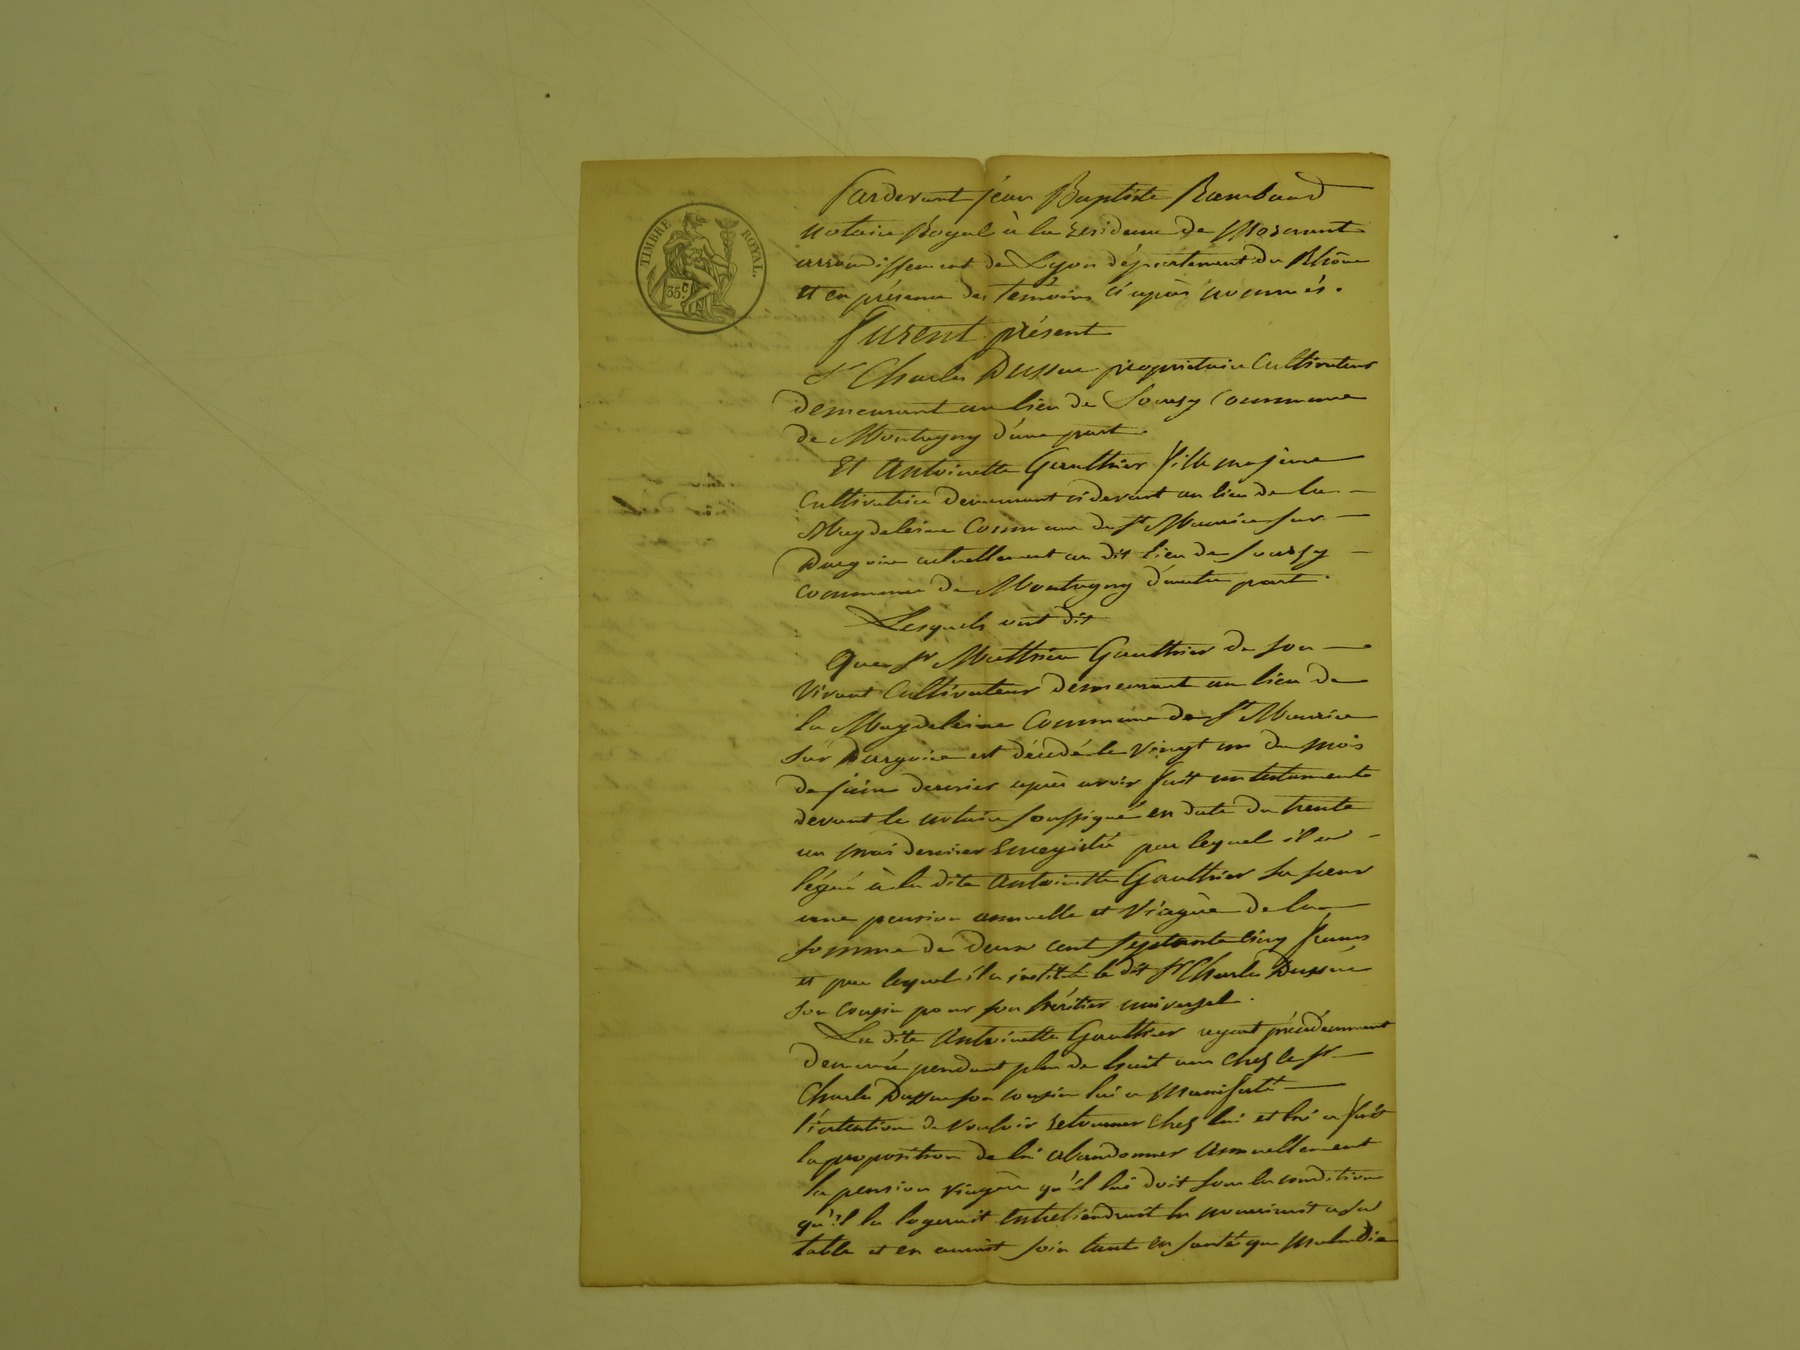 TIMBRE ROYAL.
35c
Pardevant jean Baptiste Rambaud
notaire Royal à la residence de Mornant
arrondissement de Lyon département du Rhône
et en présence des temoins ci après nommés.
Furent présent
Sr Charles Dussuc propriétaire Cultivateur
demeurant au lieu de Sourzy Commune
de Montagny d'une part.
Et Antoinette Gauthier fille majeure
Cultivatrice demeurant cidevant au lieu de la
Magdeleine Commune de St Maurice sur
Dargoire actuellement au dit lieu de Sourzy
commune de Montagny d'autre part.
Lesquels ont dit
Que Sr Matthieu Gauthier de son
Vivant Cultivateur demeurant au lieu de
la Magdeleine Commune de St Maurice
sur Dargoire est décédé le vingt un du mois
de juin dernier après avoir fait un testament
devant le notaire soussigné en date du trente
un mai dernier Enregistré par lequel il a
légué à la dite Antoinette Gauthier sa sœur
une pension annuelle et Viagère de la
somme de deux cent septante cinq francs
et par lequel il a institué le dit Sr Charles Dussuc
son cousin pour son héritier universel.
La dite Antoinette Gauthier ayant précédemment
demeuré pendant plus de huit ans chez le Sr
Charles Dussuc son cousin lui a manifesté
l'intention de vouloir retourner chez lui et lui a fait
la proposition de lui abandonner annuellement
la pension viagère qu'il lui doit sous la condition
qu'il la logerait entretiendrait la nourrirait a sa
table et en aurait soin tant en santé que maladie